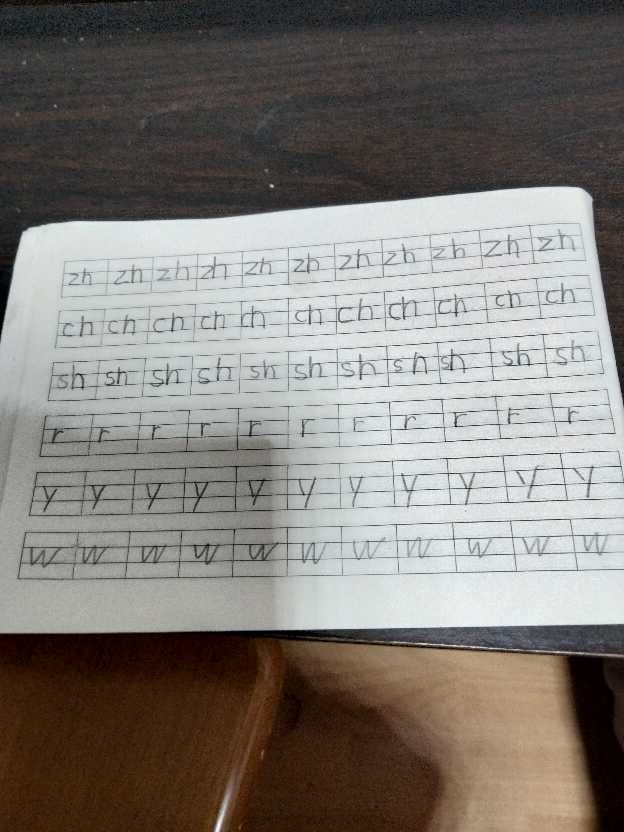 zh zh zh zh zh zh zh zh zh zh zh
ch ch ch ch ch ch ch ch ch ch ch
sh sh sh sh sh sh sh sh sh sh sh
r r r r r r r r r r r
y y y y y y y y y y y
w w w w w w w w w w w